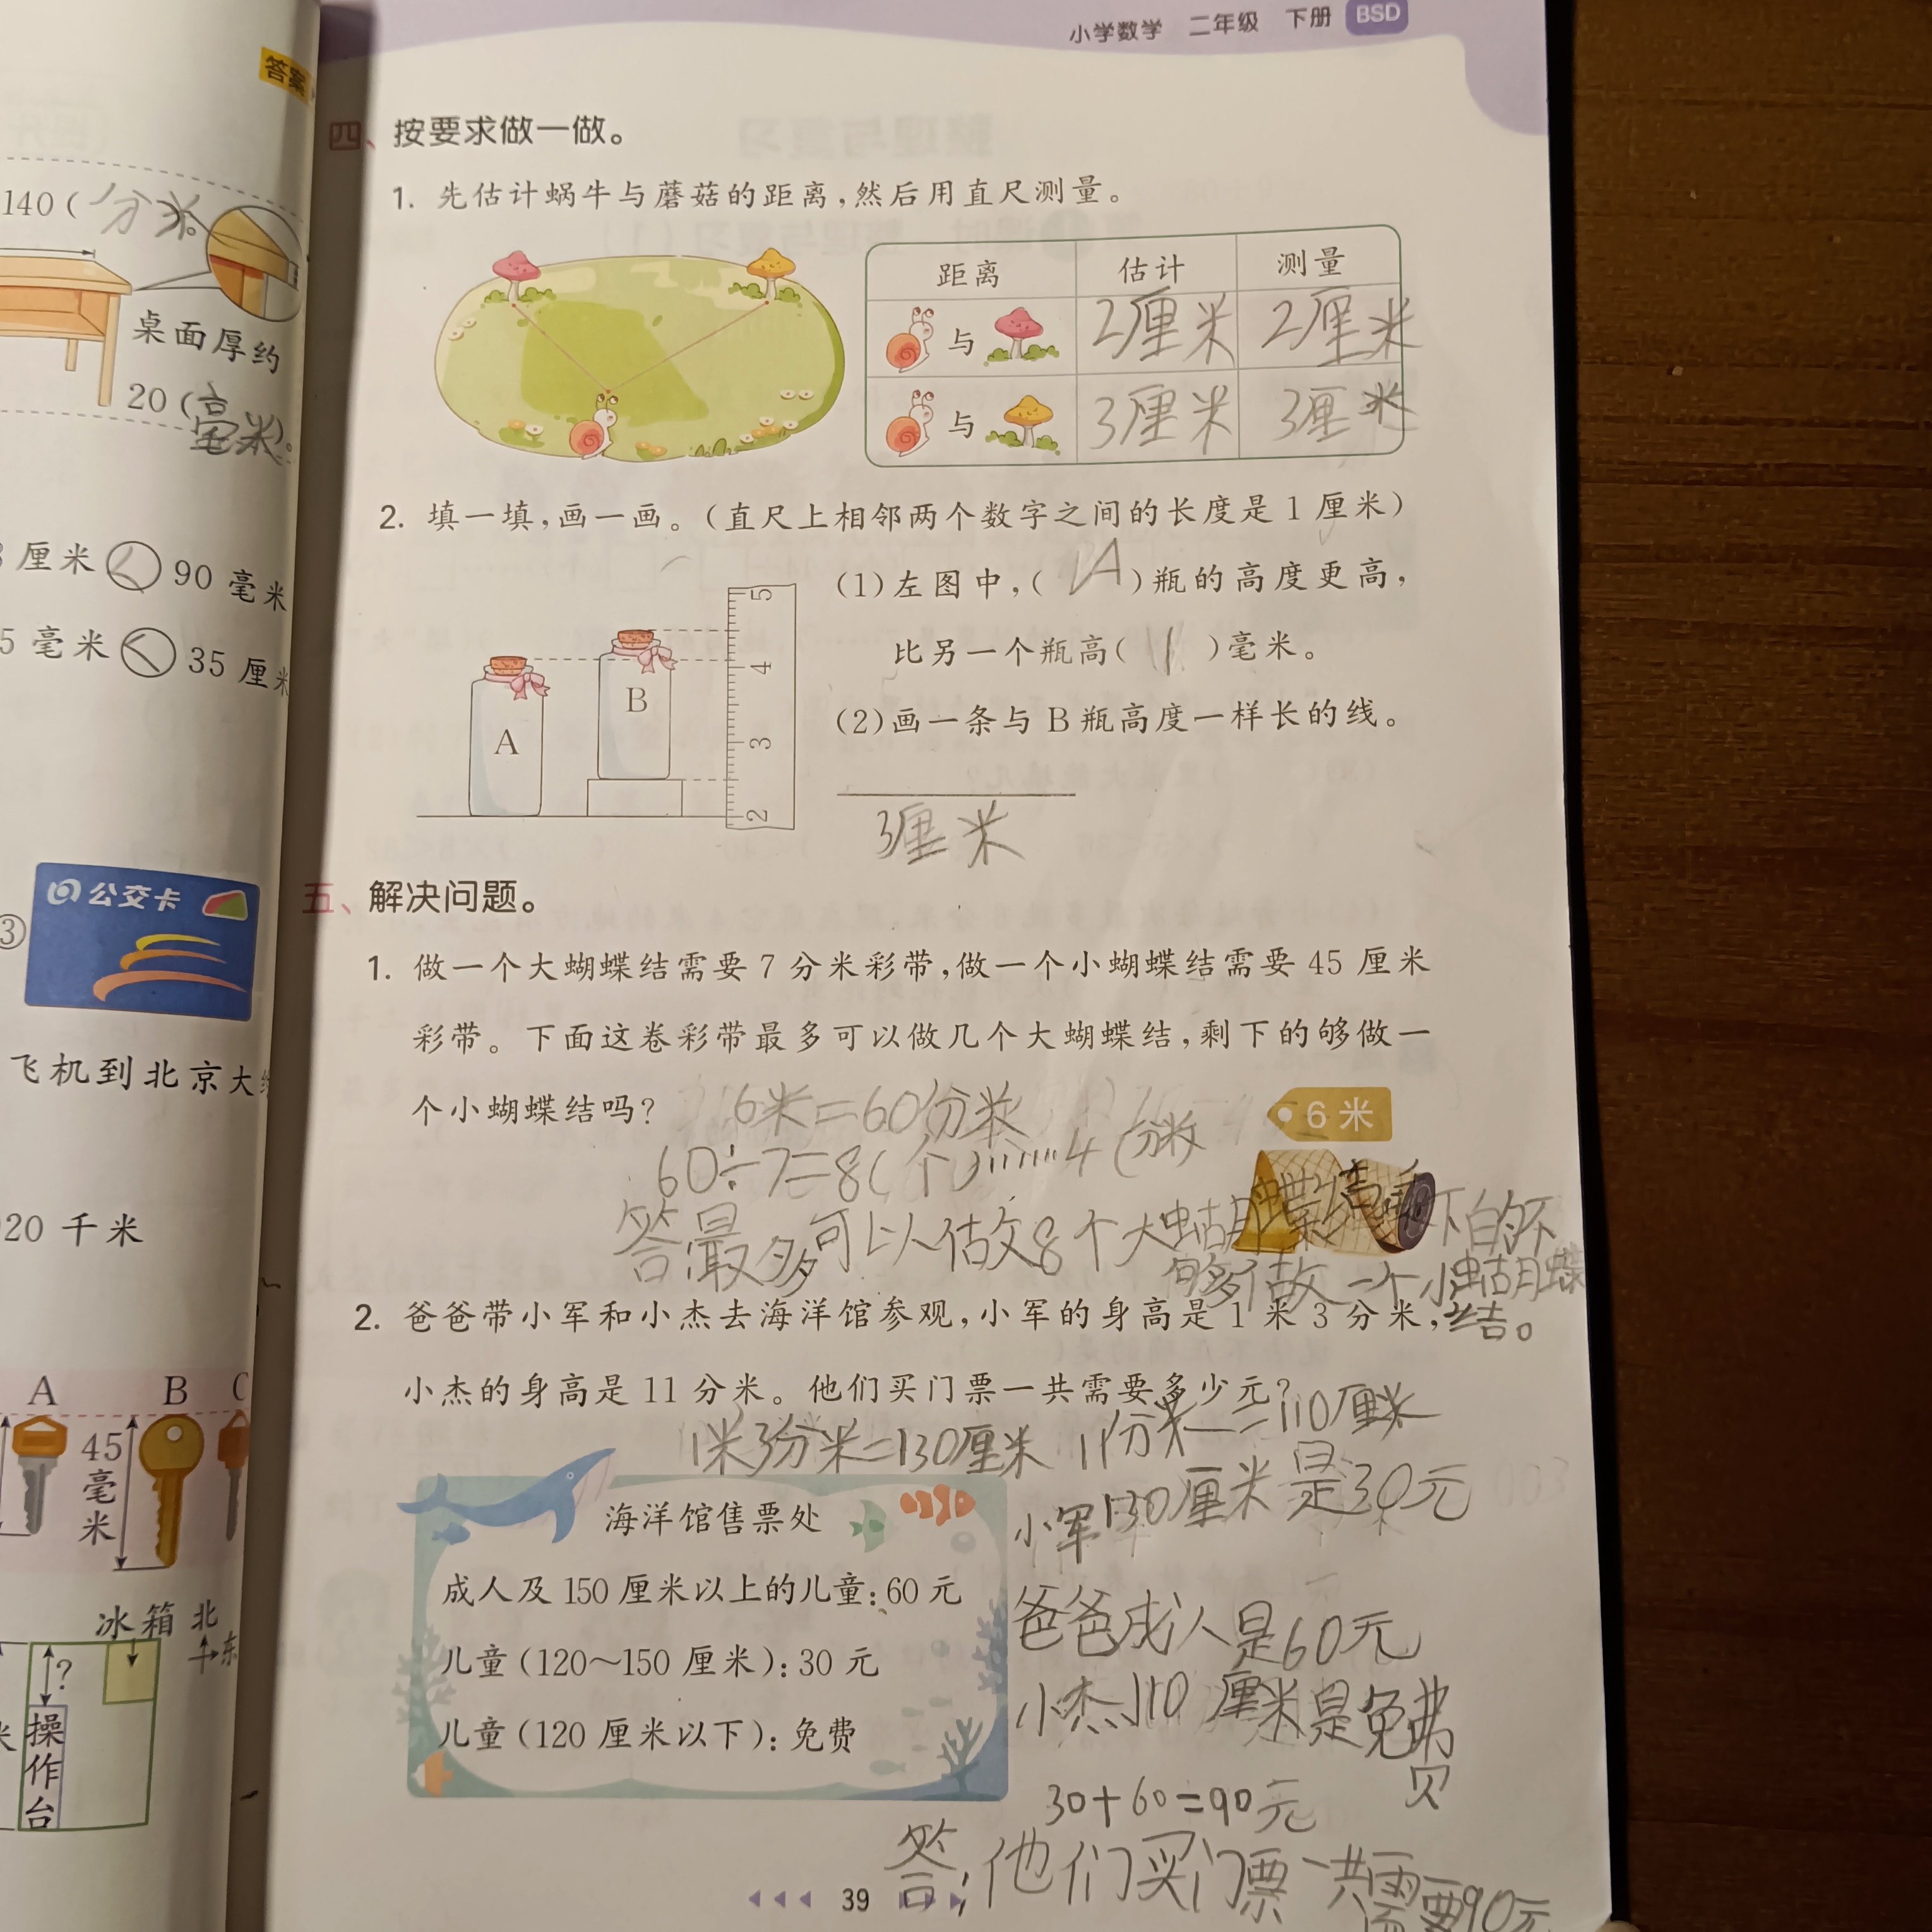 小学数学 二年级 下册 BSD
答案
140(分米)。
桌面厚约
20(毫米)。
厘米 < 90 毫米
5 毫米 < 35 厘米
③
公交卡
飞机到北京大
20 千米
A B C
45
毫
米
冰箱 北
东
?
操
作
台
四、按要求做一做。
1. 先估计蜗牛与蘑菇的距离,然后用直尺测量。
距离 估计 测量
与 2厘米 2厘米
与 3厘米 3厘米
2. 填一填,画一画。(直尺上相邻两个数字之间的长度是 1 厘米)
(1)左图中,( A )瓶的高度更高,
比另一个瓶高( 1 )毫米。
(2)画一条与 B 瓶高度一样长的线。
A
B
5
4
3
2
3厘米
五、解决问题。
1. 做一个大蝴蝶结需要 7 分米彩带,做一个小蝴蝶结需要 45 厘米
彩带。下面这卷彩带最多可以做几个大蝴蝶结,剩下的够做一
个小蝴蝶结吗?
6米=60分米
6 米
60÷7=8(个)……4(分米
答最多可以做8个大蝴蝶结 下的不
够做一个小蝴蝶
结。
2. 爸爸带小军和小杰去海洋馆参观,小军的身高是 1 米 3 分米,
小杰的身高是 11 分米。他们买门票一共需要多少元?
1米3分米=130厘米 11分米=110厘米
小军130厘米是30元
爸爸成人是60元
小杰110厘米是免费
30+60=90元
答:他们买门票一共需要90元
海洋馆售票处
成人及 150 厘米以上的儿童:60 元
儿童(120～150 厘米):30 元
儿童(120 厘米以下):免费
39